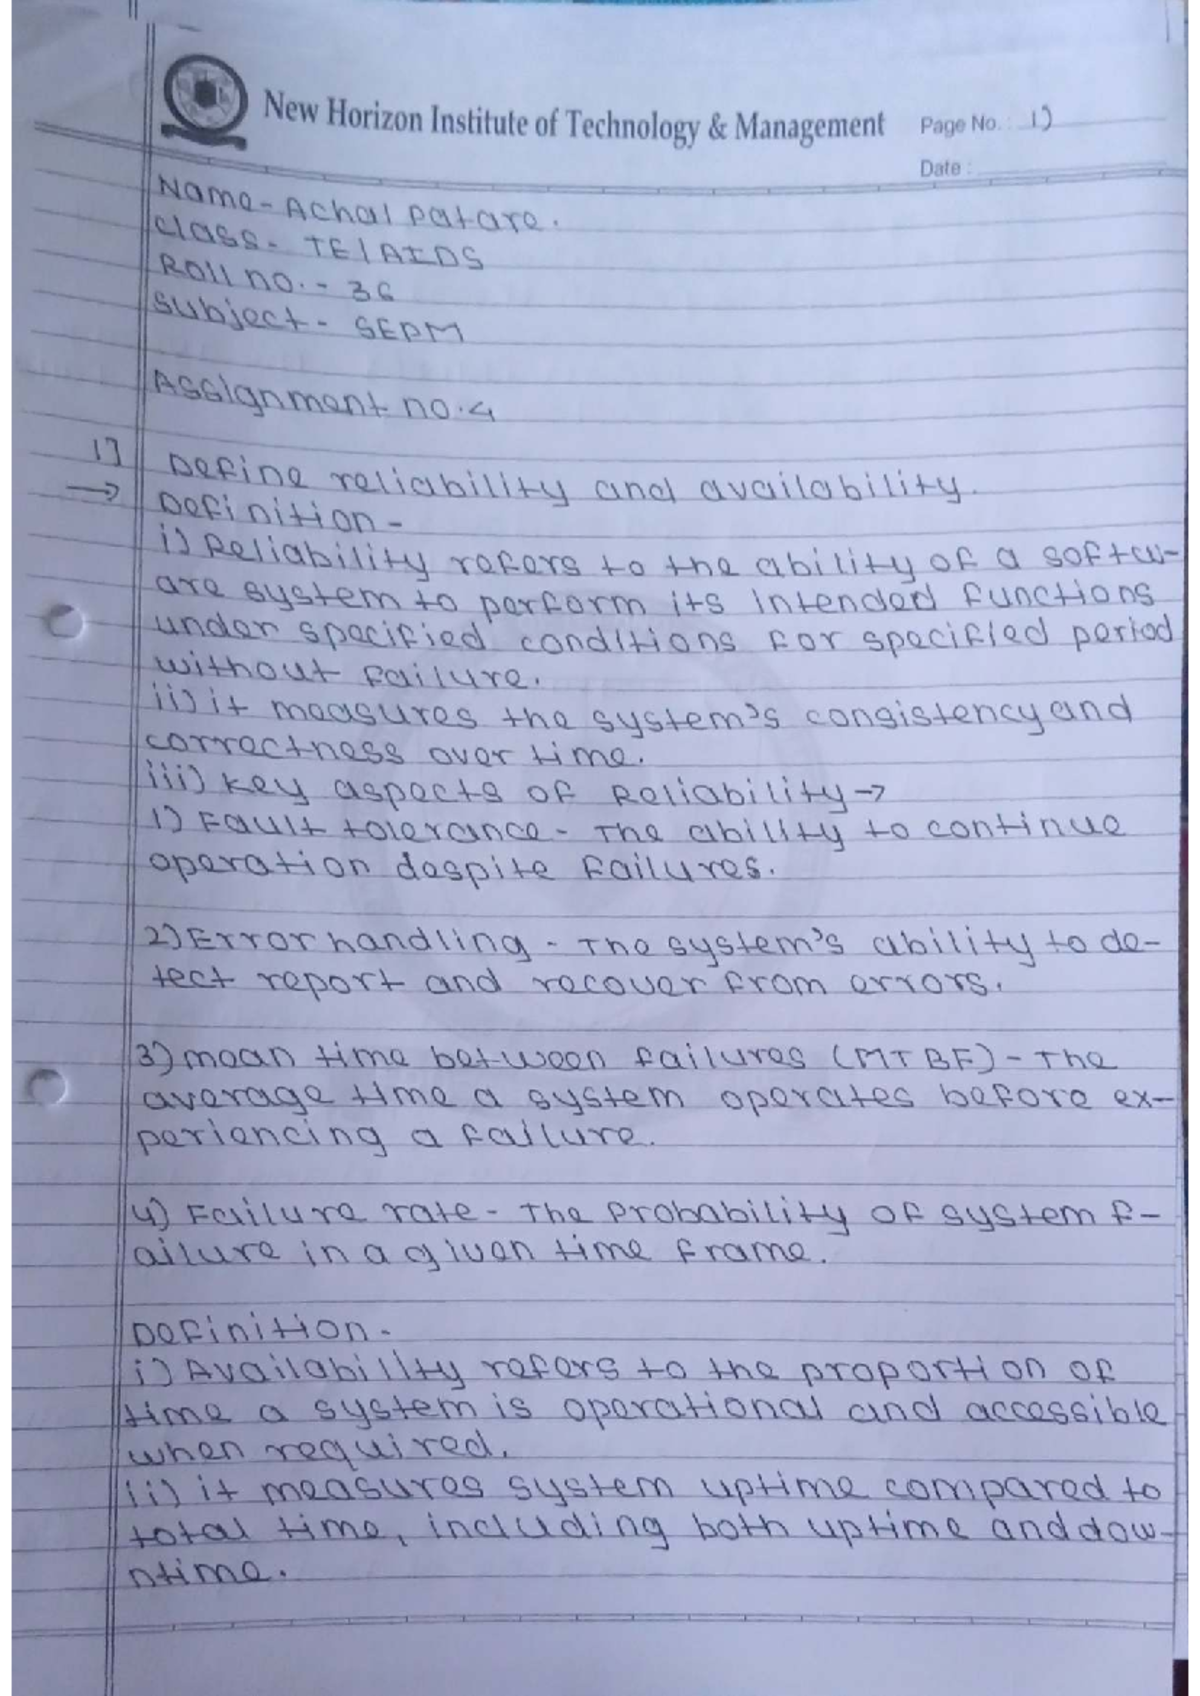 New Horizon Institute of Technology & Management
Page No. : 1)
Date :
Name - Achal Patare.
Class - TE/AIDS
Roll no. - 36
Subject - SEPM
Assignment no. 4
1] Define reliability and availability.
→ Definition -
i) Reliability refers to the ability of a softw-
are system to perform its intended functions
under specified conditions for specified period
without failure.
ii) it measures the system's consistency and
correctness over time.
iii) key aspects of Reliability →
1) Fault tolerance - The ability to continue
operation despite failures.
2) Error handling - The system's ability to de-
tect report and recover from errors.
3) mean time between failures (MTBF) - The
average time a system operates before ex-
periencing a failure.
4) Failure rate - The probability of system f-
ailure in a given time frame.
Definition -
i) Availability refers to the proportion of
time a system is operational and accessible
when required.
ii) it measures system uptime compared to
total time, including both uptime and dow-
ntime.